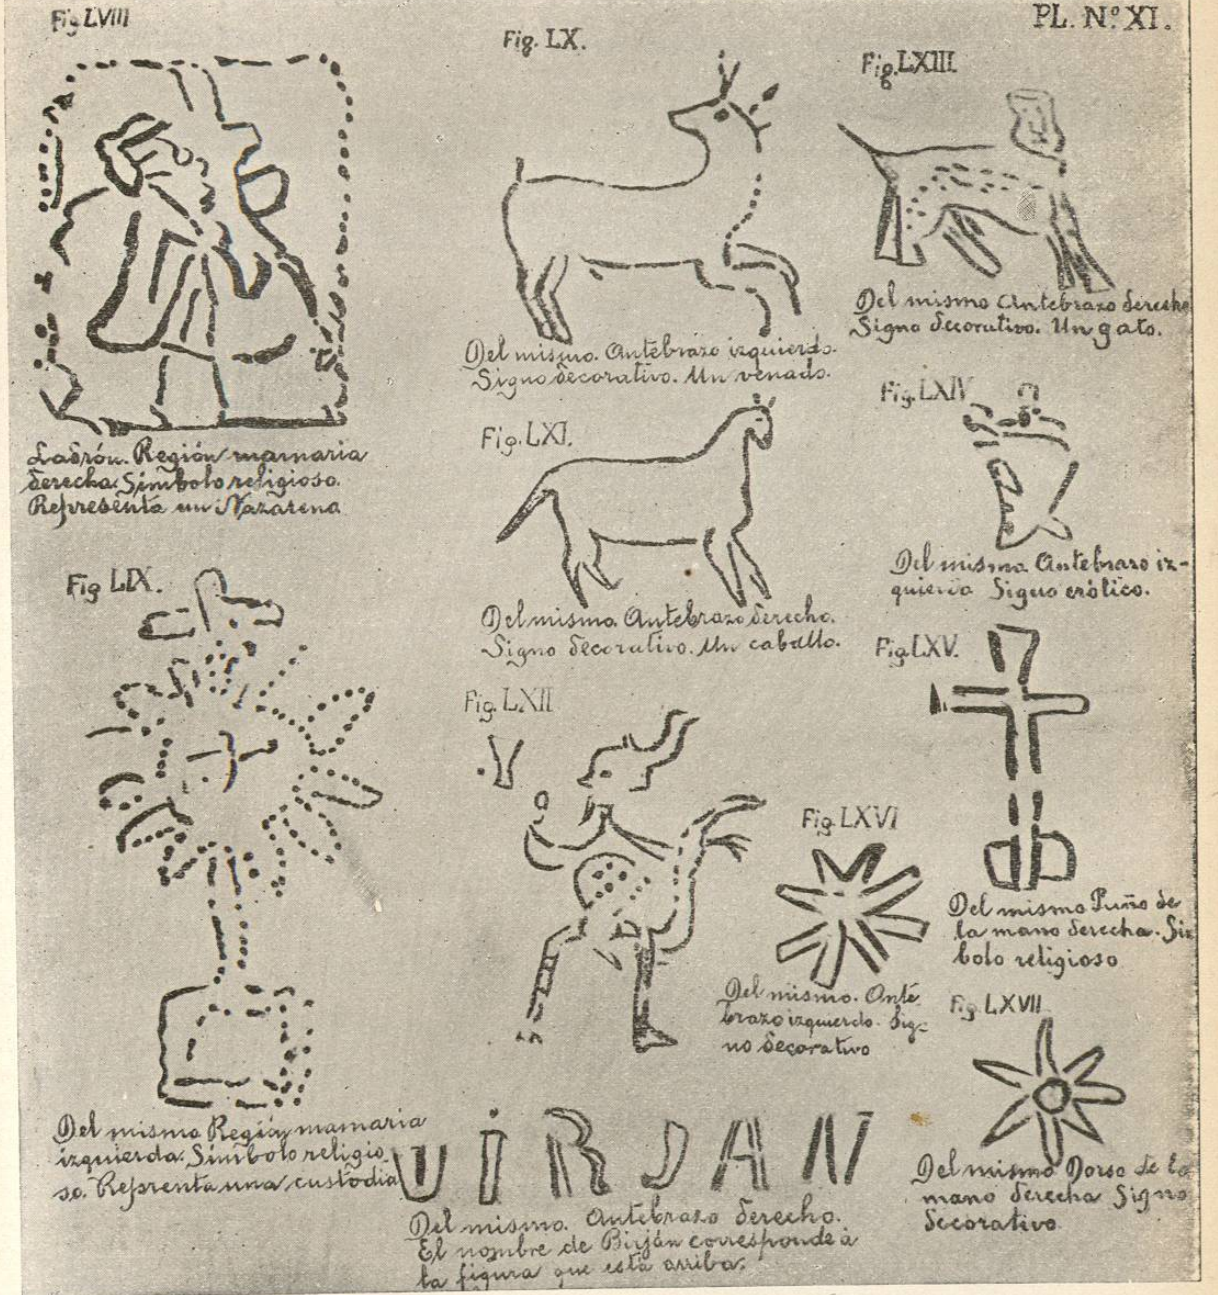 PL. Nº XI.
Fig LVIII
Ladrón. Región mamaria
derecha. Símbolo religioso.
Representa un Nazareno
Fig LIX.
Del mismo Región mamaria
izquierda. Símbolo religio
so. Reprsenta una custodia
Fig. LX.
Del mismo. Antebrazo izquierdo.
Signo decorativo. Un venado.
Fig. LXI.
Del mismo Antebrazo derecho.
Signo decorativo. Un caballo.
Fig. LXII
VIRJAN
Del mismo. Antebrazo derecho.
El nombre de Birján corresponde à
la figura que está arriba.
Fig. LXIII.
Del mismo Antebrazo derecho
Signo decorativo. Un gato.
Fig. LXIV
Del mismo Antebraso iz-
quierdo Signo erótico.
Fig. LXV.
Del mismo Puño de
la mano derecha. Sím
bolo religioso
Fig. LXVI
Del mismo. Ante
brazo izquierdo. Sig-
no decorativo
Fig. LXVII
Del mismo Dorso de la
mano derecha Signo
decorativo.